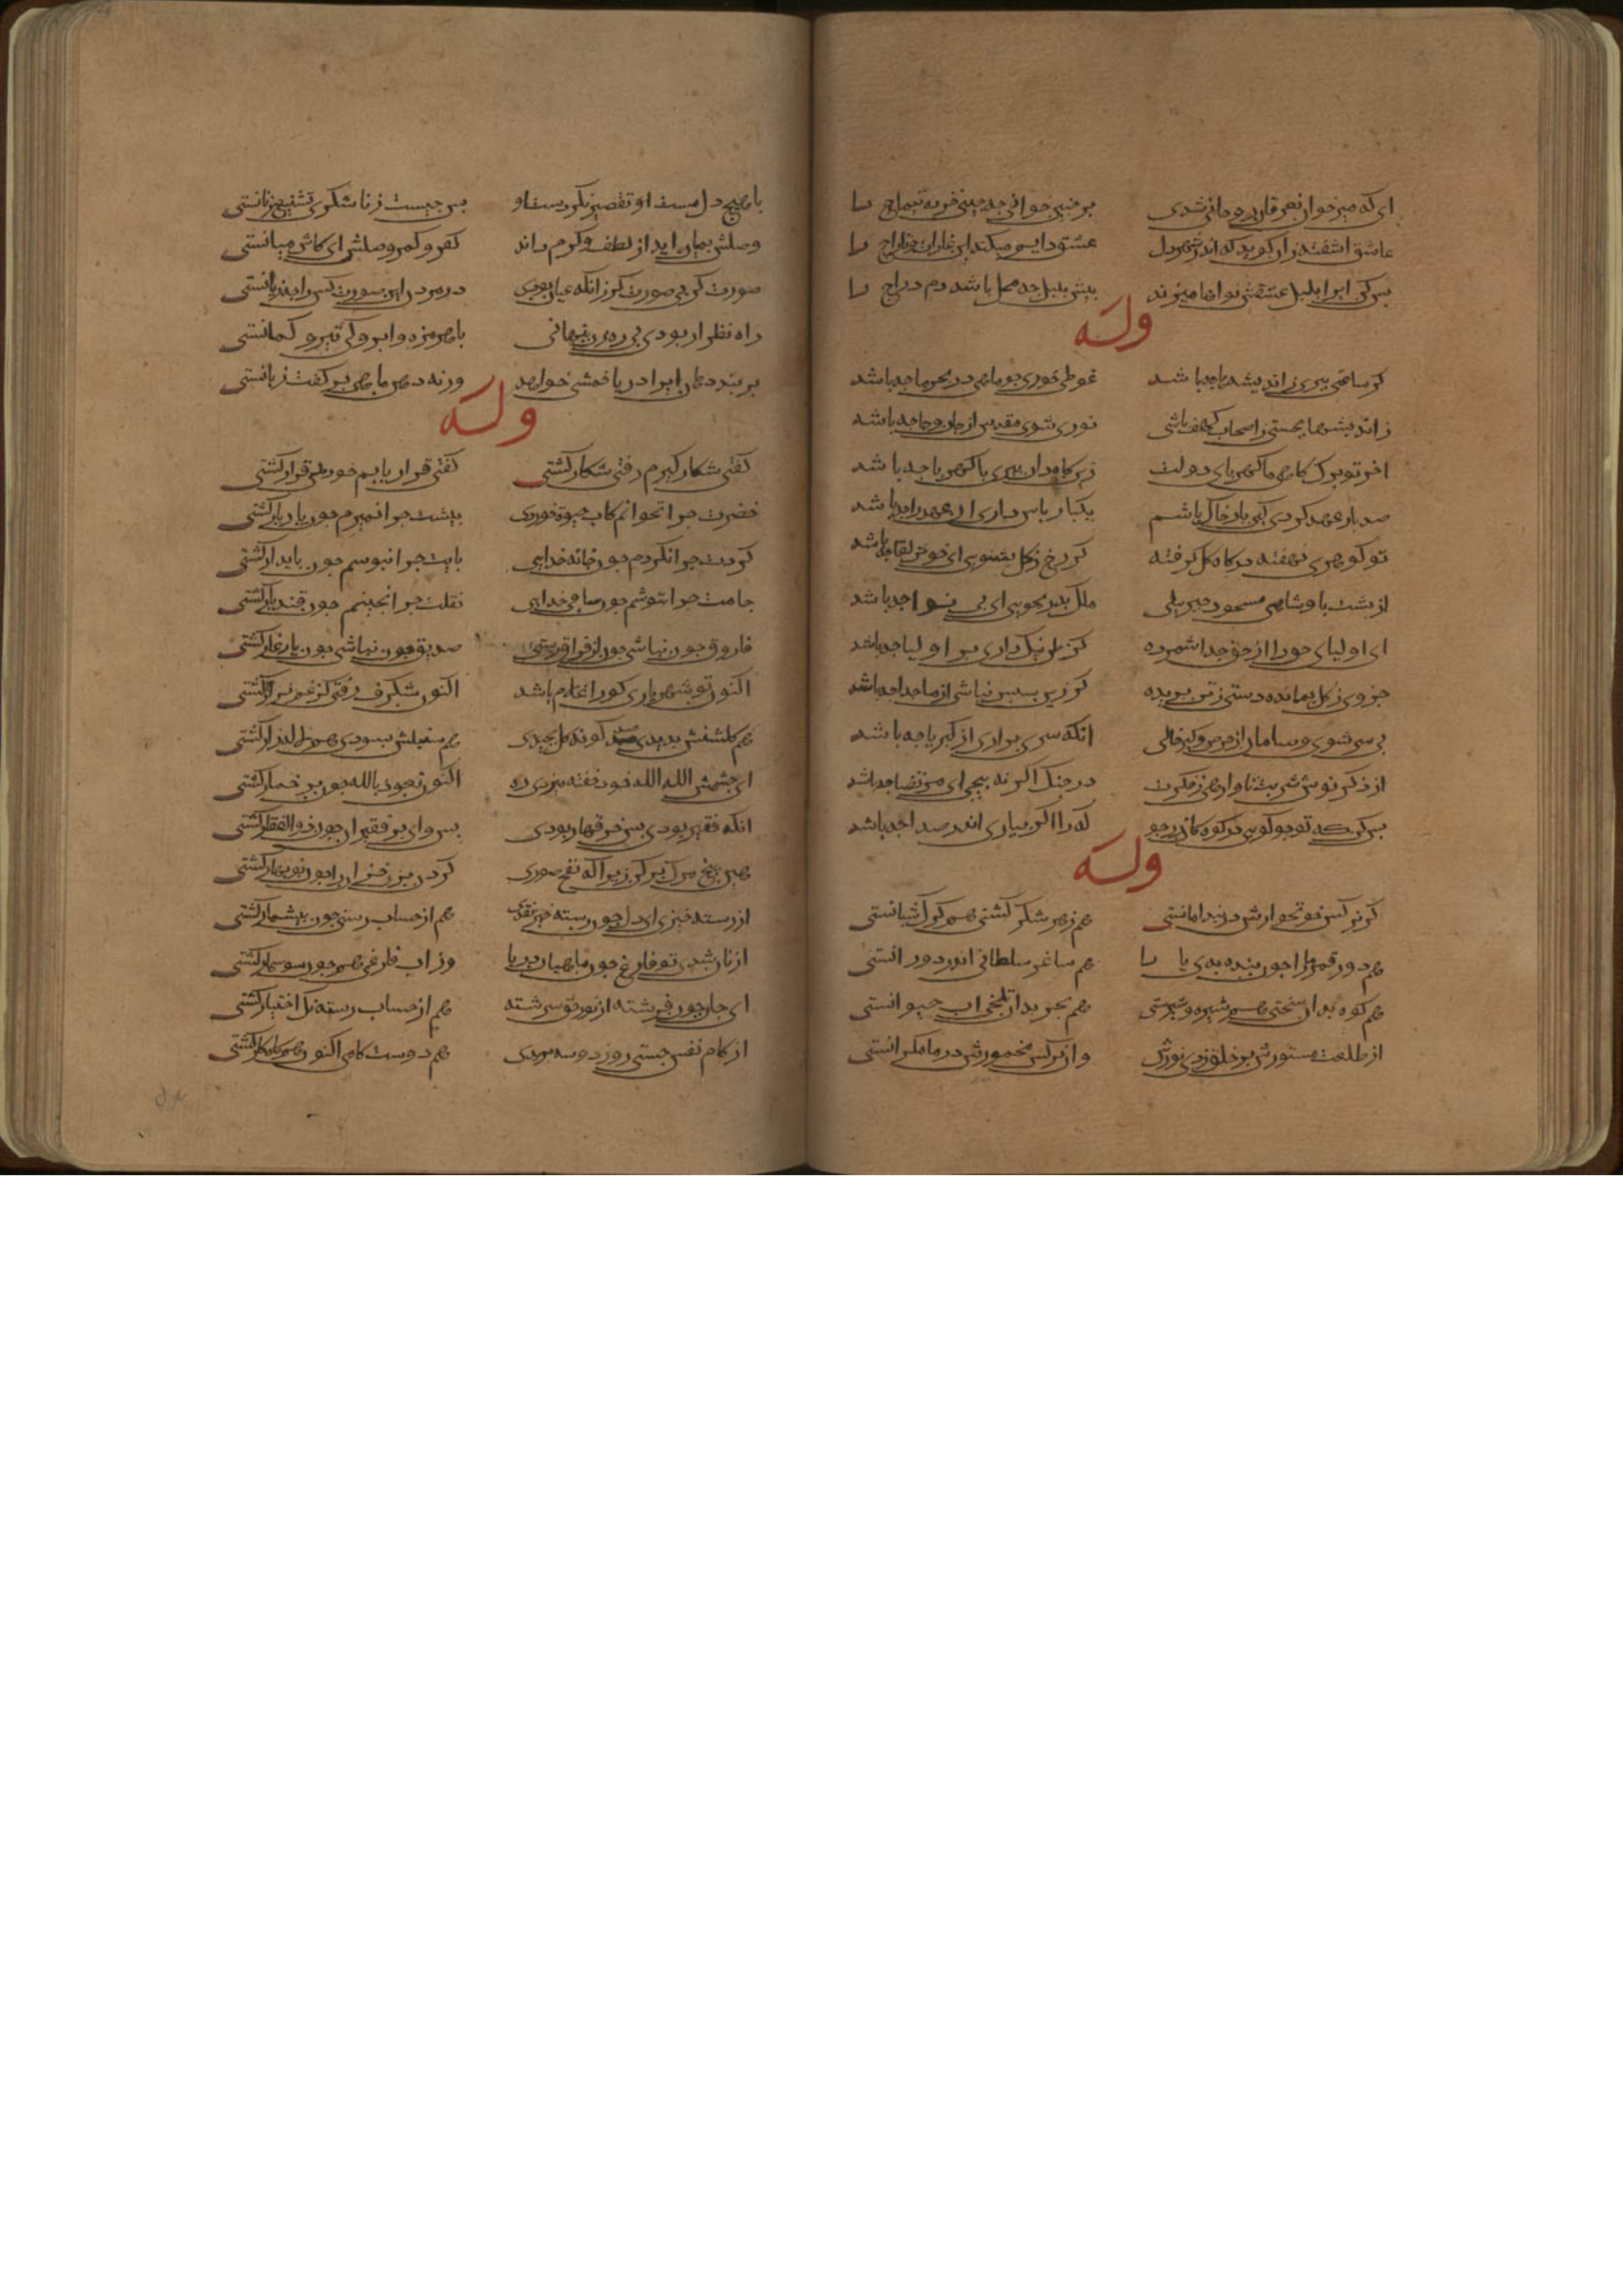 ای که میرخوان نعرقان روحانی شدی بر چنین خوانی چه چینی خرده تتماج را
عاشق اشفته زان کوید که اندر شهر دل عشق دایم میکند این غارت و تاراج را
بس کن ایرا بلبل عشقش نواها میزند پیش بلبل چه محل باشد دم دراج را
وله
کر ساعتی ببری ز اندیشها چه باشد غوطی خوری چو ماهی در بحر ما چه باشد
ز اندیشها بخسپی ز اصحاب کهف باشی نوری شوی مقدس از جان و جا چه باشد
اخر تو برک کاهی ما کهربای دولت زین کاهدان ببری با کهربا چه باشد
صد بار عهد کردی کین بار خاک باشم یکبار پاس داری ان عهد را چه باشد
تو کوهری نهفته در کاه کل کرفته کر رخ ز کل بشویی ای خوش لقا چه باشد
از پشت پادشاهی مسجود جبریلی ملک پدر بجویی ای بی نوا چه باشد
ای اولیای حق را از حق جدا شمرده کر ظن نیک داری بر اولیا چه باشد
جزوی ز کل بمانده دستی ز تن بریده کر زین سپس نباشی از ما جدا چه باشد
بی سر شوی و سامان از حرص و کبر خالی انکه سری براری از کبریا چه باشد
از ذکر نوش شربت تا وارهی ز فکرت در جنک اکر نپیچی ای مرتضا چه باشد
بس کن که تو چو کوهی در کوه کان زر جو که را اکر بیاری اندر صدا چه باشد
وله
کر نرکس خونخوارش در بند امانستی هم زهر شکر کشتی هم کرک شبانستی
هم دور قمر ما را چون بنده بدی یا را هم ساغر سلطانی اندر دورانستی
هم کوه بدان سختی هم شیره و شیرستی هم بحر بدان تلخی اب حیوانستی
از طلعت مستورش بر خلق زدی نورش واز نرکس مخمورش در ما نکرانستی
با هیچ دل مست او تقصیر نکردست او پس چیست ز ناشکری تشنیع زنانستی
وصلش بمیان اید از لطف و کرم داند کفو و کمر وصلش ای کاش میانستی
صورت کر بی صورت کر زانکه عیان بودی در مردن این صورت کس را چه زیانستی
راه نظر ار بودی بی رهزن پنهانی با هر مژه و ابرو کی تیر و کمانستی
بربند دهان ایرا دریا خمشی خواهد ورنه دهن ماهی بر کفت زبانستی
وله
کفتی شکار کیرم رفتی شکار کشتی کفتی قرار یابم خود بی قرار کشتی
خضرت چرا نخوانم کاب حیوة خوردی پیشت چرا نمیرم چون یار یار کشتی
کردت چرا نکردم چون خانه خدایی پایت چرا نبوسم چون پایدار کشتی
جامت چرا ننوشم چون ساقی خدایی نقلت چرا نچینم چون قند بار کشتی
فاروق چون نباشی چون از فراق رستی صدیق چون نباشی چون یار غار کشتی
اکنون تو شهریاری کو را غلام باشد اکنون شکرف و زفتی کز غم نزار کشتی
هم کلشنش بدیدی صد کونه کل بچیدی هم سنبلش بسودی هم لاله زار کشتی
ای چشمش الله الله خود خفته میزدی ره اکنون نعوذ بالله چون پر خمار کشتی
انکه فقیر بودی بس خرقها ربودی پس وای بر فقیران چون ذوالفقار کشتی
هین بیخ مرک برکن زیرا که نفخ صوری کردن بزن خزان را چون نوبهار کشتی
از رسته خیز ایمن چون رسته خیز نقدی هم از حساب رستی چون بیشمار کشتی
از نان شدی تو فارغ چون ماهیان دریا وز اب فارغی هم چون سوسمار کشتی
ای جان چون فرشته از نور حق سرشته هم از حساب رسته نک اختیار کشتی
از کام نفس جستی روزی دو سه بریدی هم دوست کامی اکنون هم کامکار کشتی